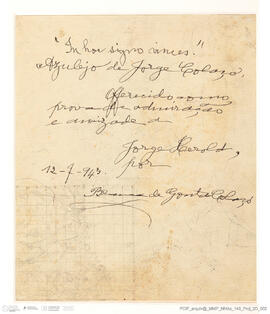 "In hoc signo vinces."
Azulejo de Jorge Colaço.
Oferecido como
prova de admiração
e amizade a
Jorge Herold,
por
12-7-943.
de Gonta Colaço